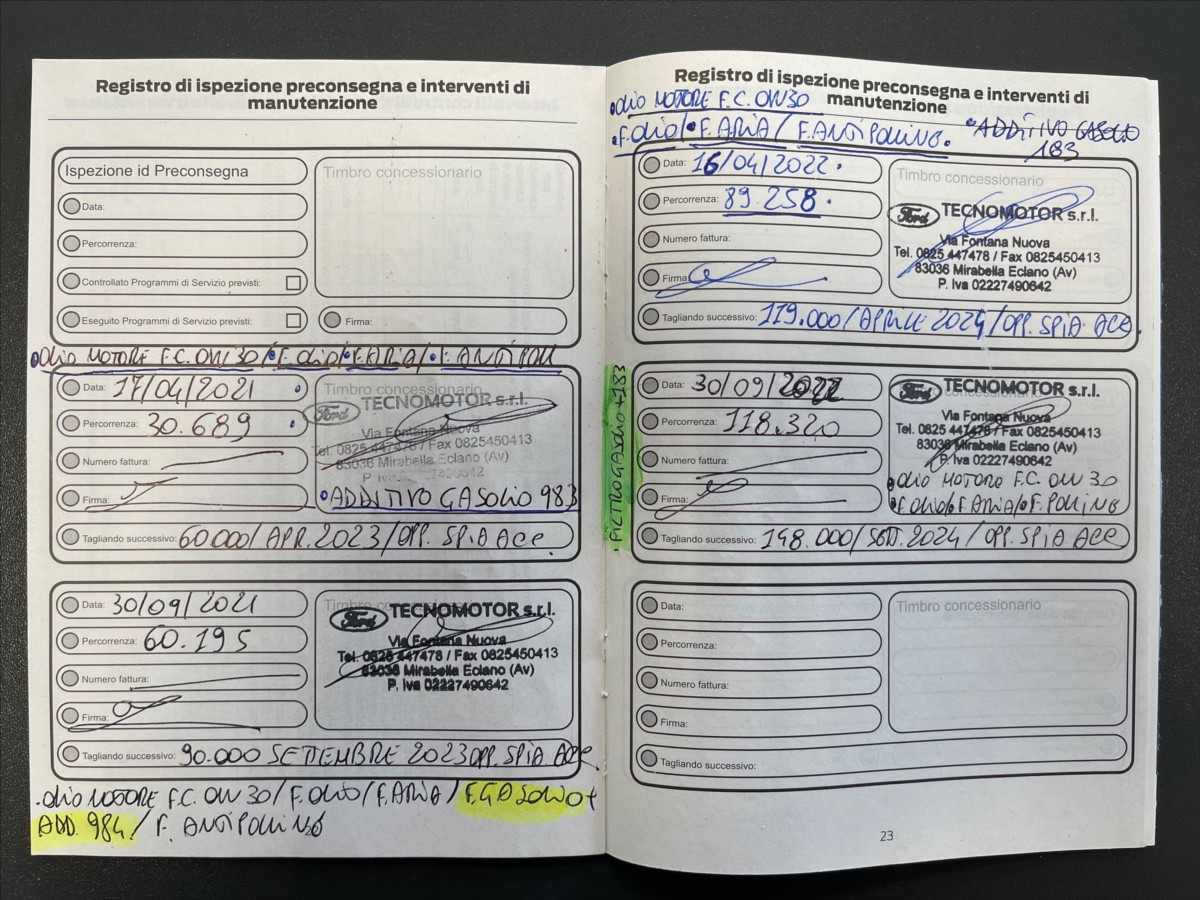 Registro di ispezione preconsegna e interventi di
manutenzione
Ispezione id Preconsegna
Data:
Percorrenza:
Controllato Programmi di Servizio previsti:
Eseguito Programmi di Servizio previsti:
Timbro concessionario
Firma:
•OLIO MOTORE F.C. OW30/•F.OLIO/•F.ARIA/•F. ANTIPOLL
Data: 17/04/2021
Percorrenza: 30.689
Numero fattura:
Firma:
Timbro concessionario
Ford TECNOMOTOR s.r.l.
Via Fontana Nuova
Tel. 0825 447478 / Fax 0825450413
83036 Mirabella Eclano (Av)
P. Iva 02227490642
•ADDITIVO GASOLIO 983
Tagliando successivo: 60.000/APR.2023/OPP. SPIA ACC.
Data: 30/09/2021
Percorrenza: 60.195
Numero fattura:
Firma:
Ford TECNOMOTOR s.r.l.
Via Fontana Nuova
Tel. 0825 447478 / Fax 0825450413
83036 Mirabella Eclano (Av)
P. Iva 02227490642
Tagliando successivo: 90.000 SETTEMBRE 2023 OPP. SPIA ACC.
.OLIO MOTORE F.C. OW 30/F.OLIO/F.ARIA/F.GASOLIO+
ADD. 984/F. ANTIPOLLINE
Registro di ispezione preconsegna e interventi di
manutenzione
•OLIO MOTORE F.C. OW30
•F.OLIO/•F.ARIA/F.ANTIPOLLINO. •ADDITIVO GASOLIO
183
Data: 16/04/2022.
Percorrenza: 89.258.
Numero fattura:
Firma:
Timbro concessionario
Ford TECNOMOTOR s.r.l.
Via Fontana Nuova
Tel. 0825 447478 / Fax 0825450413
83036 Mirabella Eclano (Av)
P. Iva 02227490642
Tagliando successivo: 119.000/APRILE 2024/OPP. SPIA ACC.
.FILTRO GASOLIO+183
Data: 30/09/2022
Percorrenza: 118.320
Numero fattura:
Firma:
Ford TECNOMOTOR s.r.l.
Via Fontana Nuova
Tel. 0825 447478 / Fax 0825450413
83036 Mirabella Eclano (Av)
P. Iva 02227490642
•OLIO MOTORE F.C. OW 30
•F.OLIO/•F.ARIA/•F.POLLINO
Tagliando successivo: 148.000/SETT.2024/OPP. SPIA ACC
Data:
Percorrenza:
Numero fattura:
Firma:
Timbro concessionario
Tagliando successivo:
23